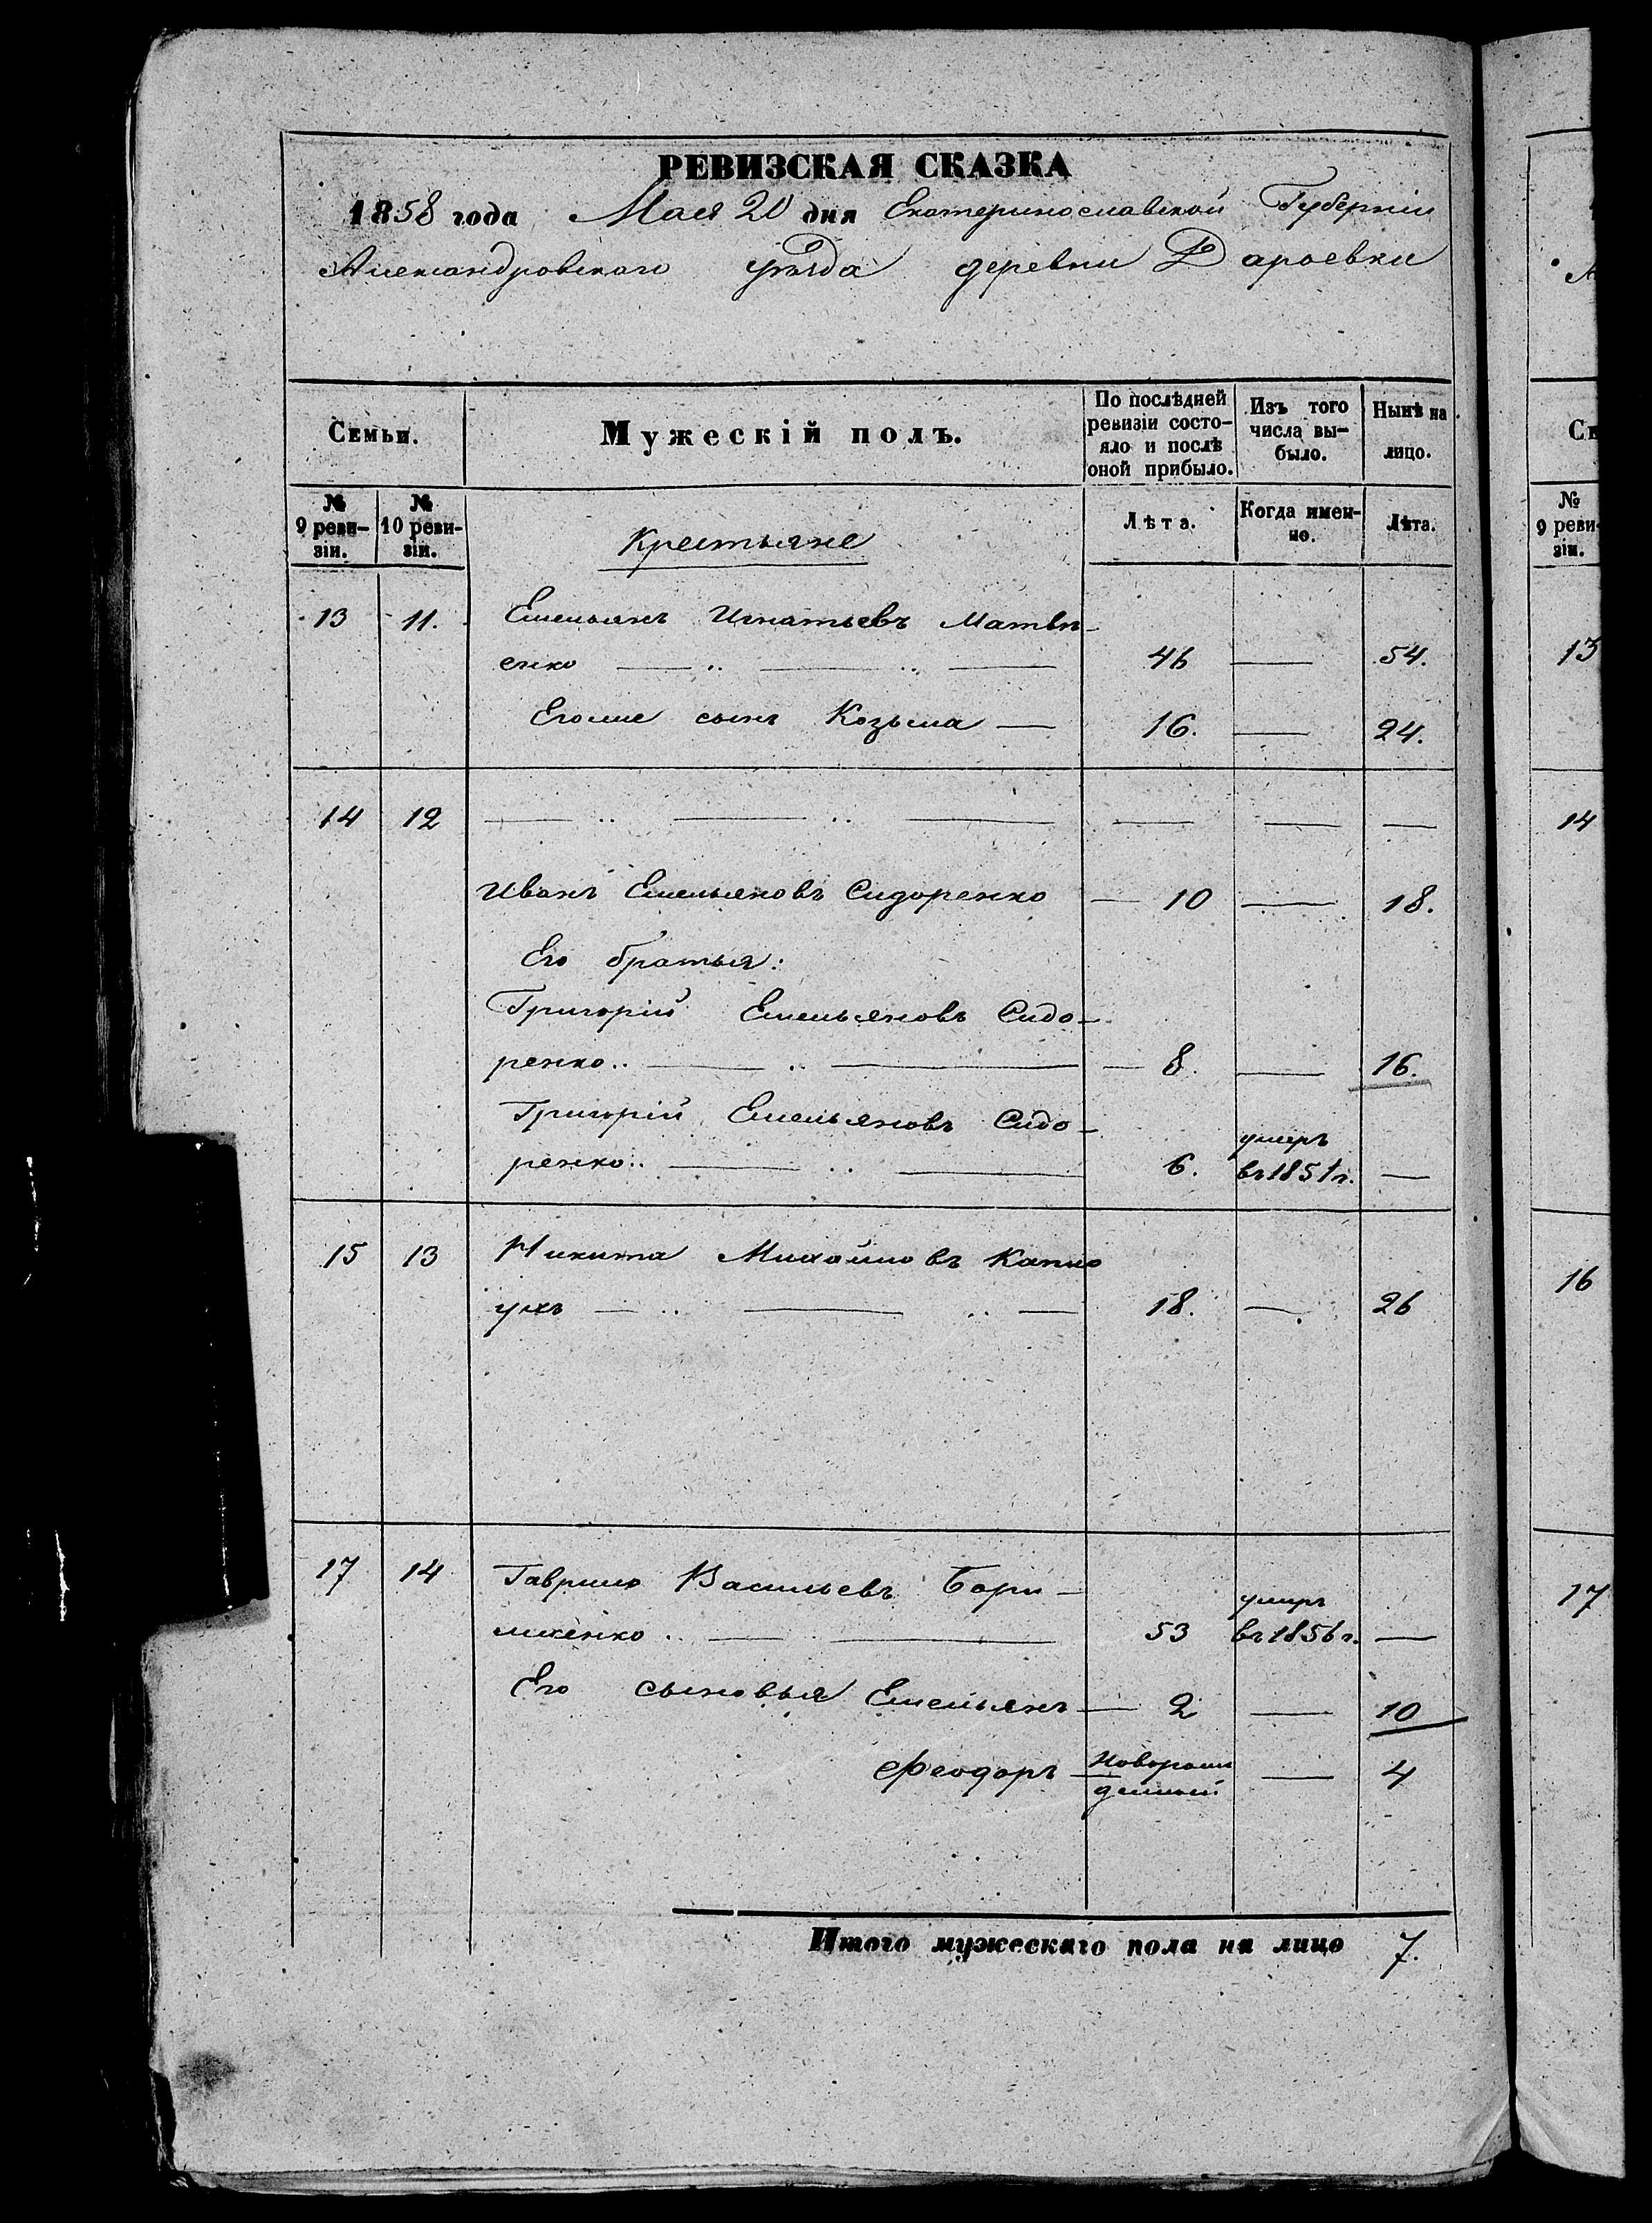 РЕВИЗСКАЯ СКАЗКА
1858 года Мая 20 дня Екатеринославской Губерніи
Александровскаго уѣзда деревни Дароевки
Семьи.
Мужескій полъ.
По послѣдней ревизіи состо-
яло и послѣ оной прибыло.
Изъ того числа вы-
было.
Нынѣ на лицо.
№ 9 реви-
зіи.
№ 10 реви-
зіи.
Крестьяне
Лѣта.
Когда имен-
но.
Лѣта.
13 11. Емельянъ Игнатьевъ Матвѣ-
енко 46 — 54.
Егоже сынъ Козьма — 16. — 24.
14 12 — — —
Иванъ Емельяновъ Сидоренко — 10 — 18.
Его братья:
Григорій Емельяновъ Сидо-
ренко.. — 8. — 16.
Григорій Емельяновъ Сидо-
ренко.. 6. умеръ въ 1851 г. —
15 13 Никита Михайловъ Капло
ухъ 18. — 26
17 14 Гаврило Васильевъ Бори-
шкенко 53 умеръ въ 1856 г. —
Его сыновья Емельянъ — 2 — 10
Феодоръ новорож
денный — 4
Итого мужескаго пола на лицо 7.
А
Се
№
9 реви-
зіи.
13
14
16
17